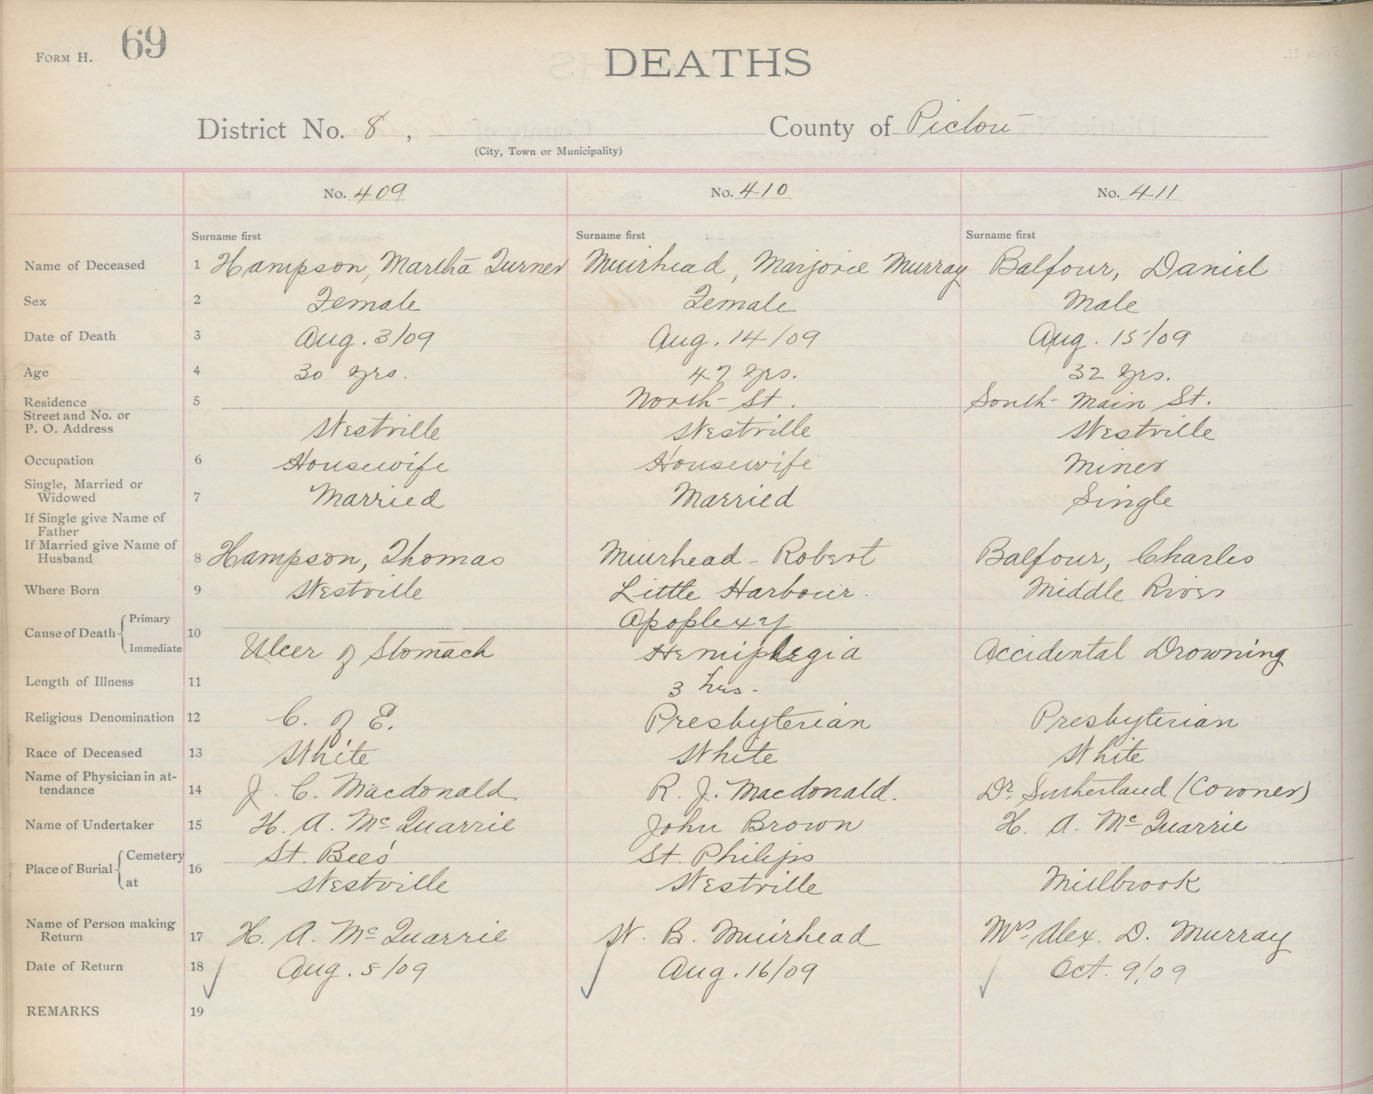 FORM H. 69
DEATHS
District No. 8, County of Pictou
(City, Town or Municipality)
No. 409 No. 410 No. 411
Surname first Surname first Surname first
Name of Deceased 1 Hampson, Martha Turner Muirhead, Marjorie Murray Balfour, Daniel
Sex 2 Female Female Male
Date of Death 3 Aug. 3/09 Aug. 14/09 Aug. 15/09
Age 4 30 yrs. 47 yrs. 32 yrs.
Residence 5 North St. South Main St.
Street and No. or
P. O. Address Westville Westville Westville
Occupation 6 Housewife Housewife Miner
Single, Married or
Widowed 7 Married Married Single
If Single give Name of
Father
If Married give Name of
Husband 8 Hampson, Thomas Muirhead - Robert Balfour, Charles
Where Born 9 Westville Little Harbour. Middle River
Cause of Death Primary 10 Apoplexy
Immediate Ulcer of Stomach Hemiplegia Accidental Drowning
Length of Illness 11 3 hrs.
Religious Denomination 12 C. of E. Presbyterian Presbyterian
Race of Deceased 13 White White White
Name of Physician in at-
tendance 14 J. C. Macdonald R. J. Macdonald. Dr. Sutherland (Coroner)
Name of Undertaker 15 H. A. McQuarrie John Brown H. A. McQuarrie
Place of Burial Cemetery 16 St. Bees' St. Philips
at Westville Westville Millbrook
Name of Person making
Return 17 H. A. McQuarrie W. B. Muirhead Mrs. Alex. D. Murray
Date of Return 18 Aug. 5/09 Aug. 16/09 Oct. 9/09
REMARKS 19